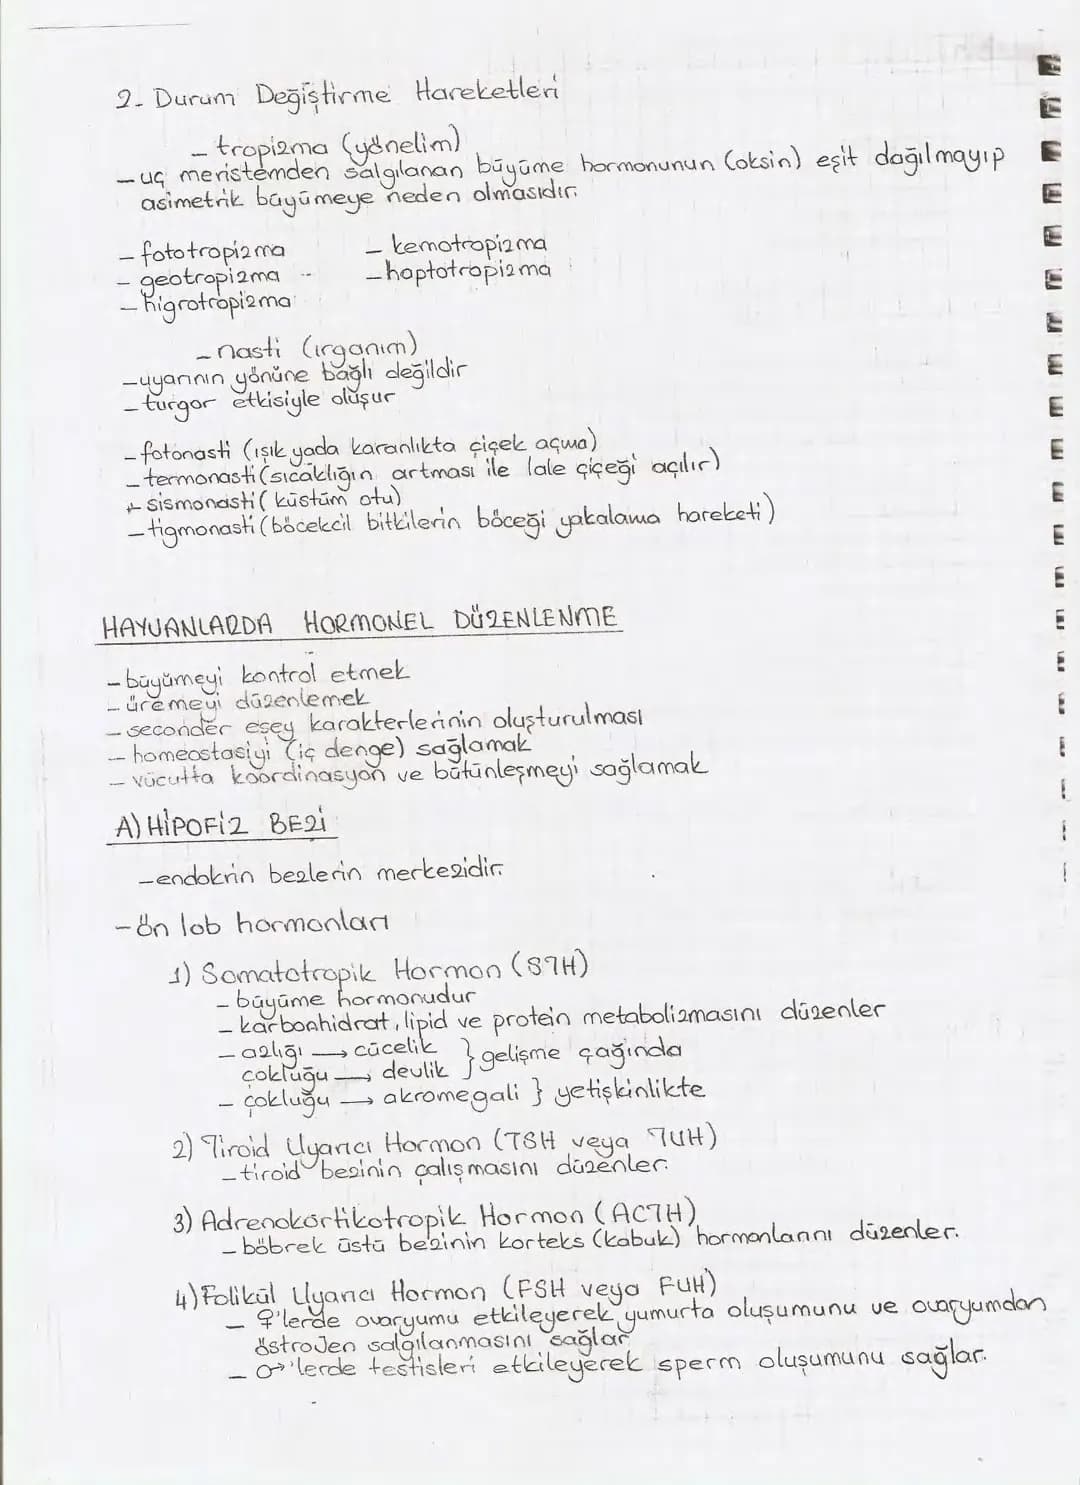 2- Durum Değiştirme Hareketleri
- tropizma (yönelim)
- uç meristemden salgılanan büyüme hormonunun (oksin) eşit dağılmayıp
asimetrik büyümeye neden olmasıdır.
- fototropizma
- kemotropizma
- geotropizma
- haptotropizma
- higrotropizma
- nasti (ırganım)
- uyarının yönüne bağlı değildir
- turgor etkisiyle oluşur
- fotonasti (ışık yada karanlıkta çiçek açma)
- termonasti (sıcaklığın artması ile lale çiçeği açılır)
- sismonasti (küstüm otu)
- tigmonasti (böcekcil bitkilerin böceği yakalama hareketi)
HAYVANLARDA HORMONEL DÜZENLENME
- büyümeyi kontrol etmek
- üremeyi düzenlemek
- seconder eşey karakterlerinin oluşturulması
- homeostasiyi (iç denge) sağlamak
- vücutta koordinasyon ve bütünleşmeyi sağlamak
A) HİPOFİZ BEZİ
- endokrin bezlerin merkezidir.
- ön lob hormonları
1) Somatotropik Hormon (STH)
- büyüme hormonudur
- karbonhidrat, lipid ve protein metabolizmasını düzenler
- azlığı → cücelik } gelişme çağında
çokluğu → devlik
- çokluğu → akromegali } yetişkinlikte
2) Tiroid Uyarıcı Hormon (TSH veya TUH)
- tiroid bezinin çalışmasını düzenler.
3) Adrenokortikotropik Hormon (ACTH)
- böbrek üstü bezinin korteks (kabuk) hormonlarını düzenler.
4) Folikül Uyarıcı Hormon (FSH veya FUH)
- ♀'lerde ovaryumu etkileyerek yumurta oluşumunu ve ovaryumdan
östrojen salgılanmasını sağlar
- ♂'lerde testisleri etkileyerek sperm oluşumunu sağlar.